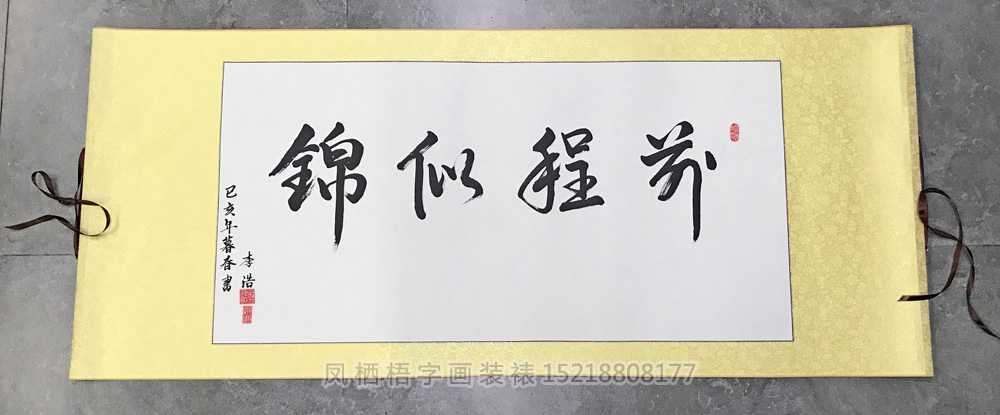 前程似錦
己亥年暮春書
李浩
凤栖梧字画装裱15218808177